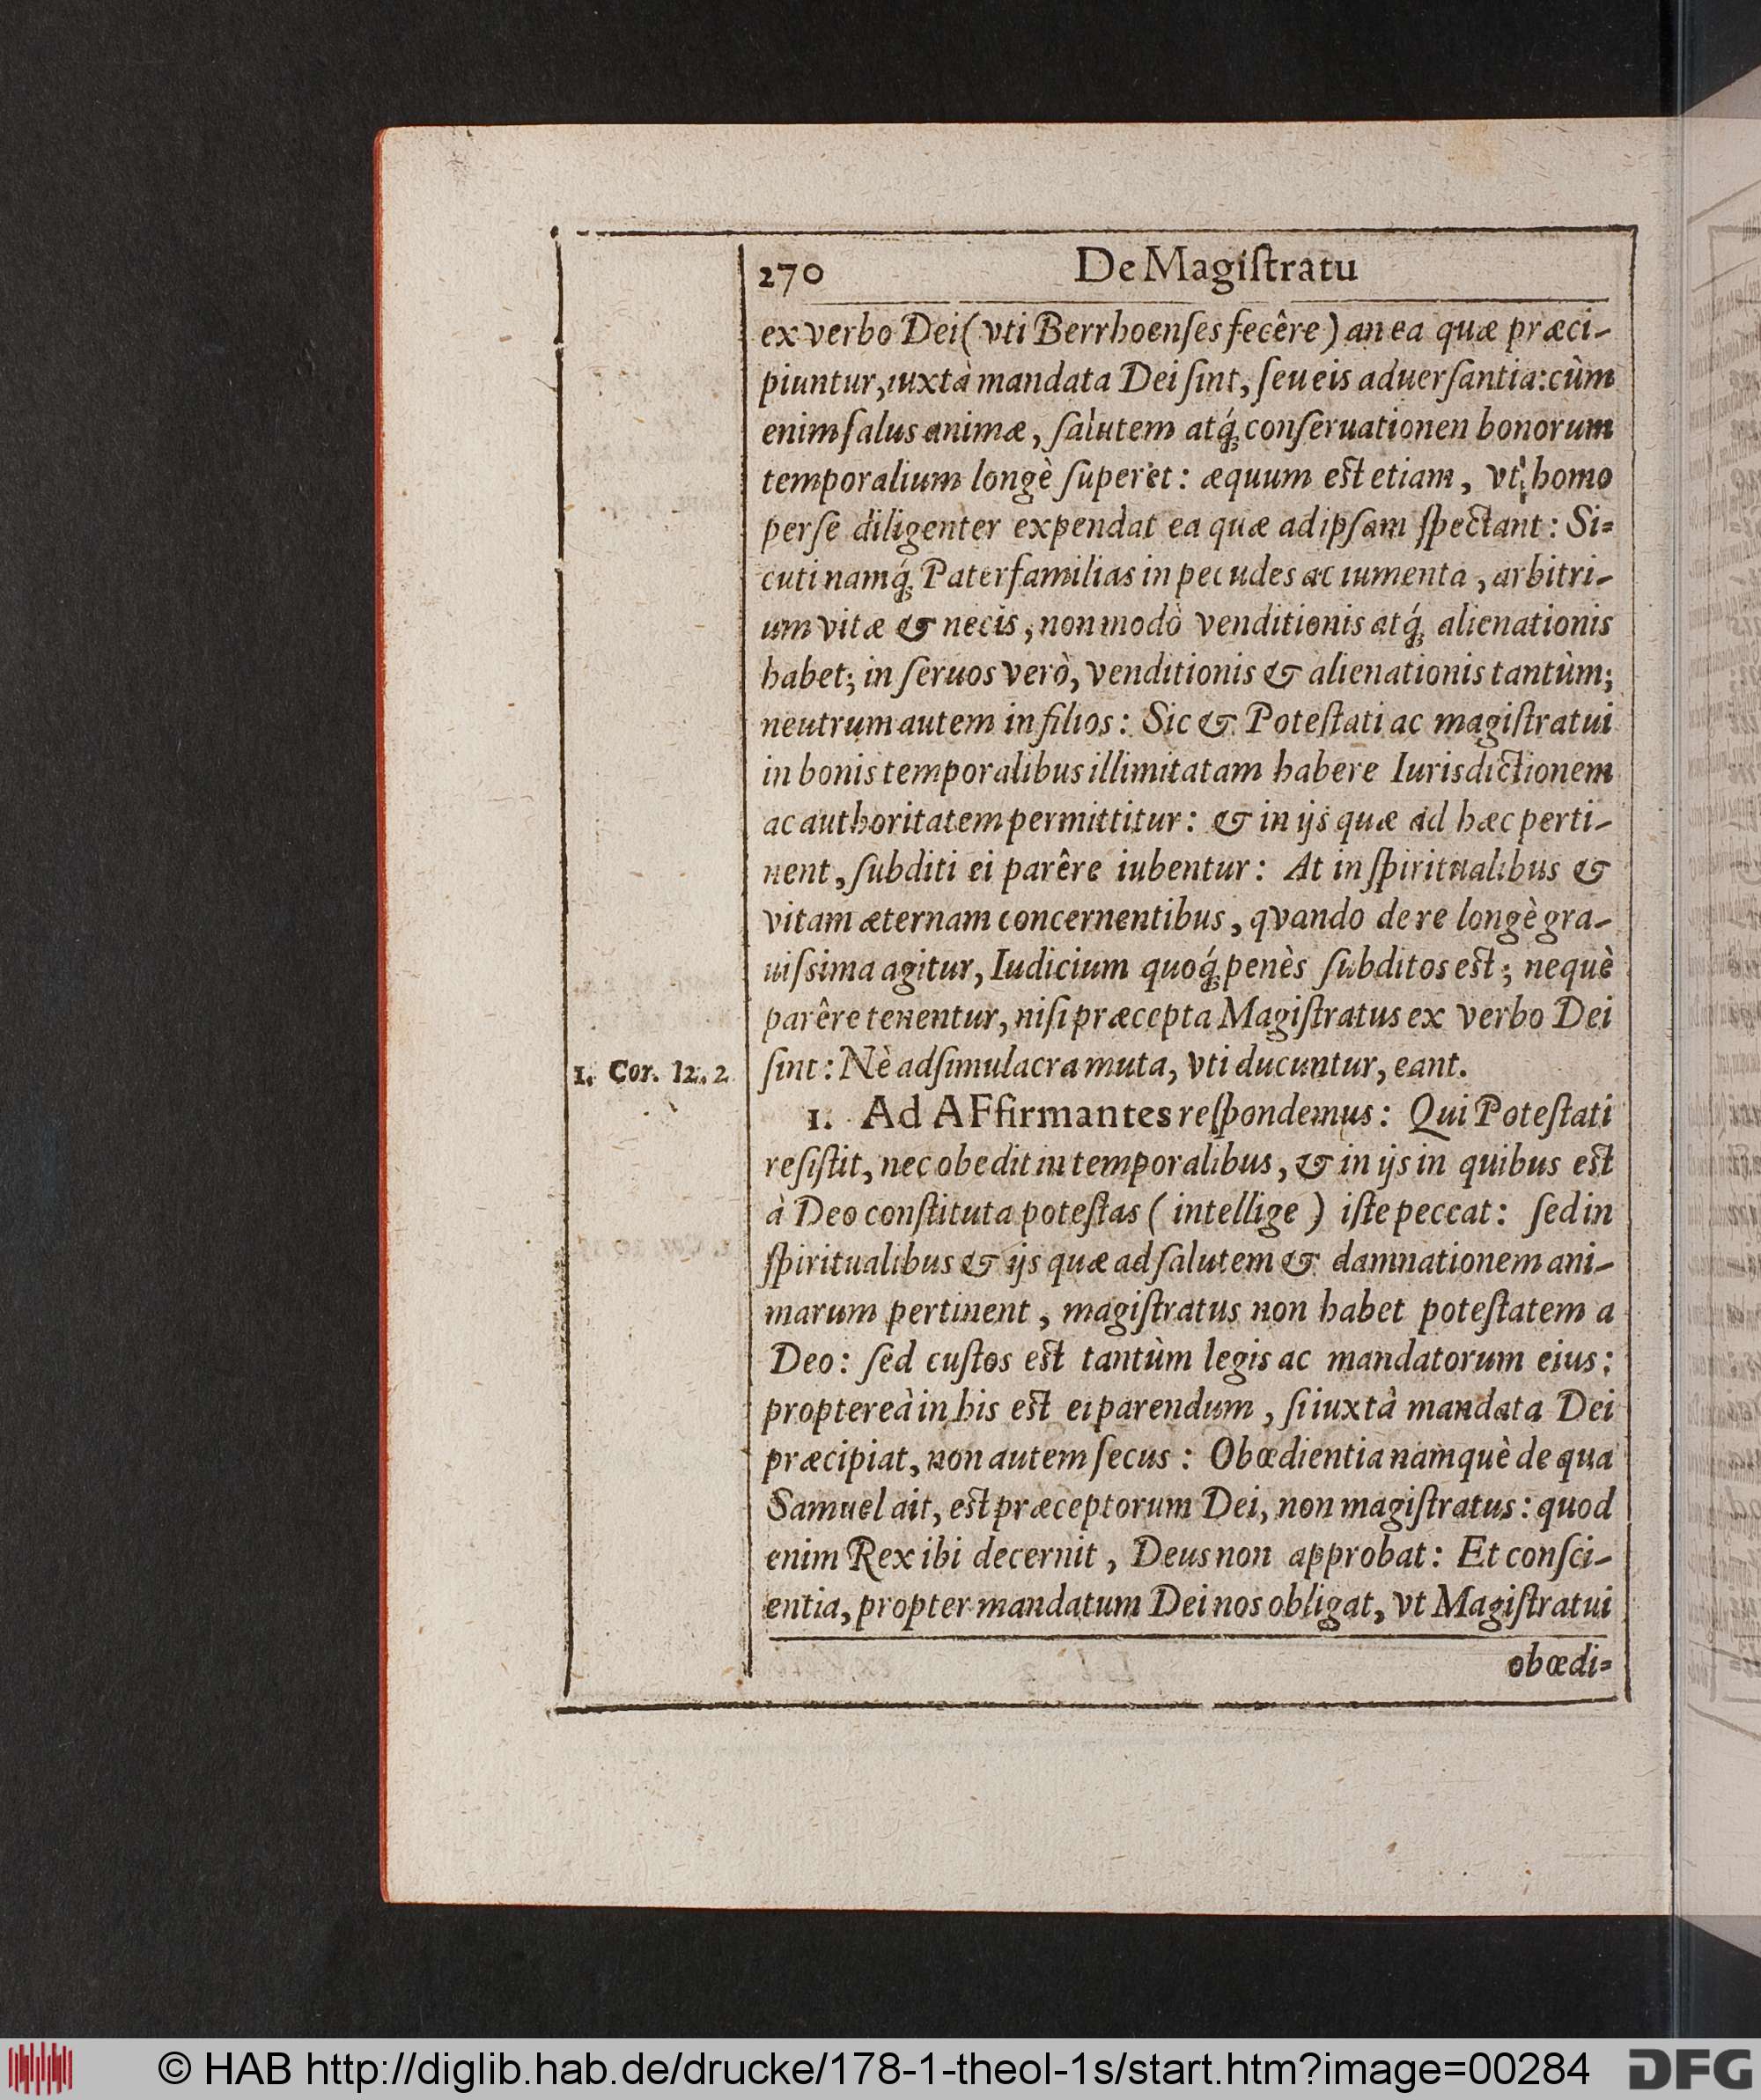 270 De Magiſtratu
ex verbo Dei (vti Berrhoenſes fecêre) an ea quæ præci-
piuntur, iuxtà mandata Dei ſint, ſeu eis aduerſantia: cùm
enim ſalus animæ, ſalutem atq́; conſeruationen bonorum
temporalium longè ſuperet: æquum eſt etiam, vti homo
per ſe diligenter expendat ea quæ ad ipſam ſpectant: Si-
cuti namq́; Paterfamilias in pecudes ac iumenta, arbitri-
um vitæ & necis, non modò venditionis atq́; alienationis
habet; in ſeruos verò, venditionis & alienationis tantùm;
neutrum autem in filios: Sic & Poteſtati ac magiſtratui
in bonis temporalibus illimitatam habere Iurisdictionem
ac authoritatem permittitur: & in ijs quæ ad hæc perti-
nent, ſubditi ei parêre iubentur: At in ſpiritualibus &
vitam æternam concernentibus, qvando de re longè gra-
uiſsima agitur, Iudicium quoq́; penès ſubditos eſt; nequè
parêre tenentur, niſi præcepta Magiſtratus ex verbo Dei
1. Cor. 12. 2
ſint: Nè ad ſimulacra muta, vti ducuntur, eant.
1. Ad AFfirmantes reſpondemus: Qui Poteſtati
reſiſtit, nec obedit in temporalibus, & in ijs in quibus eſt
à Deo conſtituta poteſtas (intellige) iſte peccat: ſed in
ſpiritualibus & ijs quæ ad ſalutem & damnationem ani-
marum pertinent, magiſtratus non habet poteſtatem a
Deo: ſed cuſtos eſt tantùm legis ac mandatorum eius:
proptereà in his eſt ei parendum, ſi iuxtà mandata Dei
præcipiat, non autem ſecus: Obœdientia namquè de qua
Samuel ait, eſt præceptorum Dei, non magiſtratus: quod
enim Rex ibi decernit, Deus non approbat: Et conſci-
entia, propter mandatum Dei nos obligat, vt Magiſtratui
obœdi-
© HAB http://diglib.hab.de/drucke/178-1-theol-1s/start.htm?image=00284
DFG